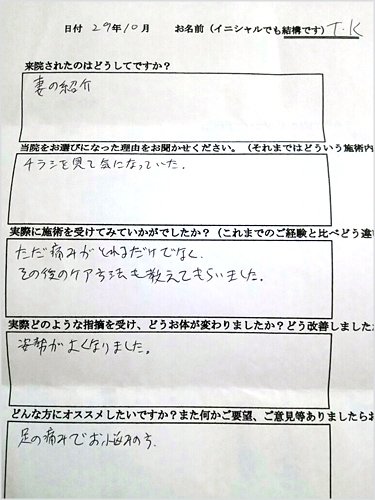 日付 29年10月 お名前(イニシャルでも結構です) T.K
来院されたのはどうしてですか?
妻の紹介
当院をお選びになった理由をお聞かせください。(それまではどういう施術内
チラシを見て気になっていた.
実際に施術を受けてみていかがでしたか?(これまでのご経験と比べどう違
ただ痛みがとれるだけでなく、
その後のケア方法も教えてもらいました。
実際どのような指摘を受け、どうお体が変わりましたか?どう改善しました
姿勢がよくなりました。
どんな方にオススメしたいですか?また何かご要望、ご意見等ありましたらお
足の痛みでお悩みの方.